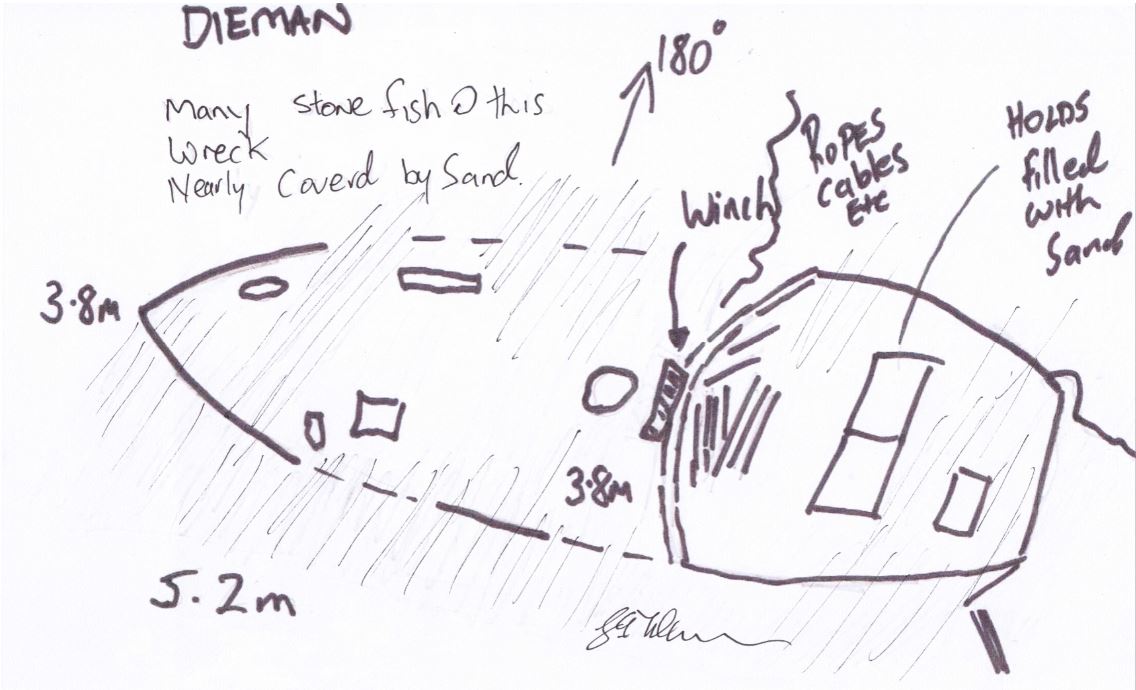 DIEMAN
Many stone fish @ this
Wreck
Nearly Coverd by Sand.
180°
Winch
ROPES
Cables
Etc
HOLDS
filled
with
Sand
3.8m
3.8m
5.2m